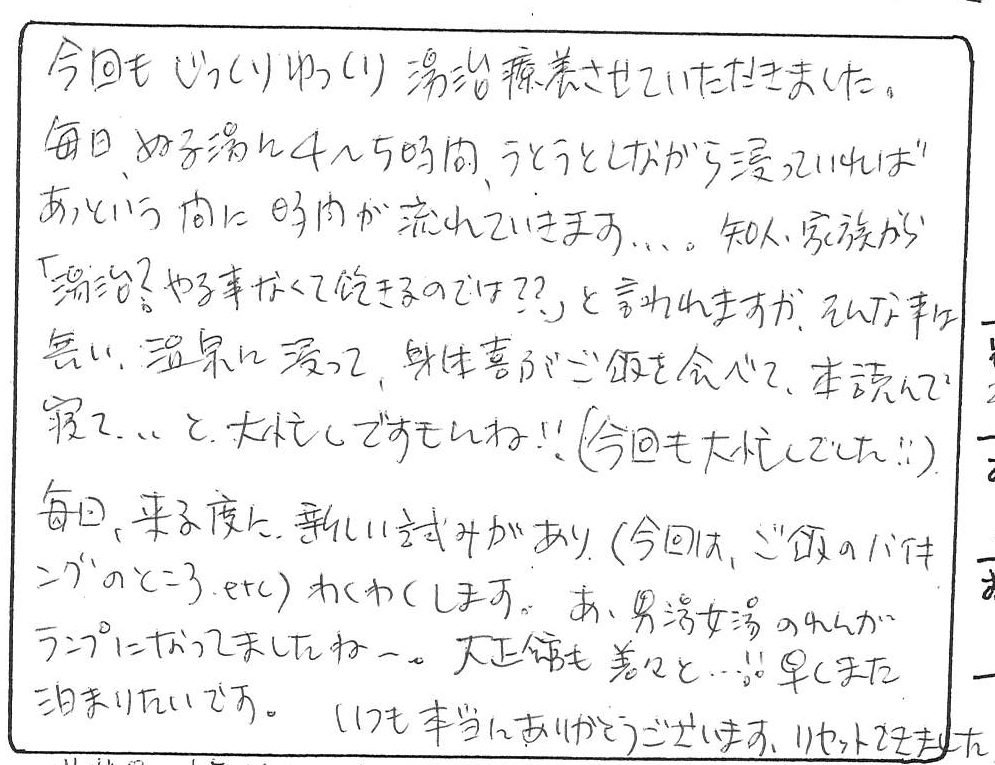 今回もじっくりゆっくり湯治療養させていただきました。
毎日、ぬる湯に4～5時間、うとうとしながら浸っていれば
あっという間に時間が流れていきます....。知人、家族から
「湯治?やる事なくて飽きるのでは??」と言われますが、そんな事は
無い、温泉に浸って、身体喜ぶご飯を食べて、本読んで
寝て... と、大忙しですもんね!!(今回も大忙しでした!!)
毎日、来る度に、新しい試みがあり、(今回は、ご飯のバイキ
ングのところ.etc)わくわくします。 あ、男湯女湯ののれんが
ランプになってましたね～。 大正館も着々と...!!早くまた
泊まりたいです。 いつも本当にありがとうございます、リセットできました